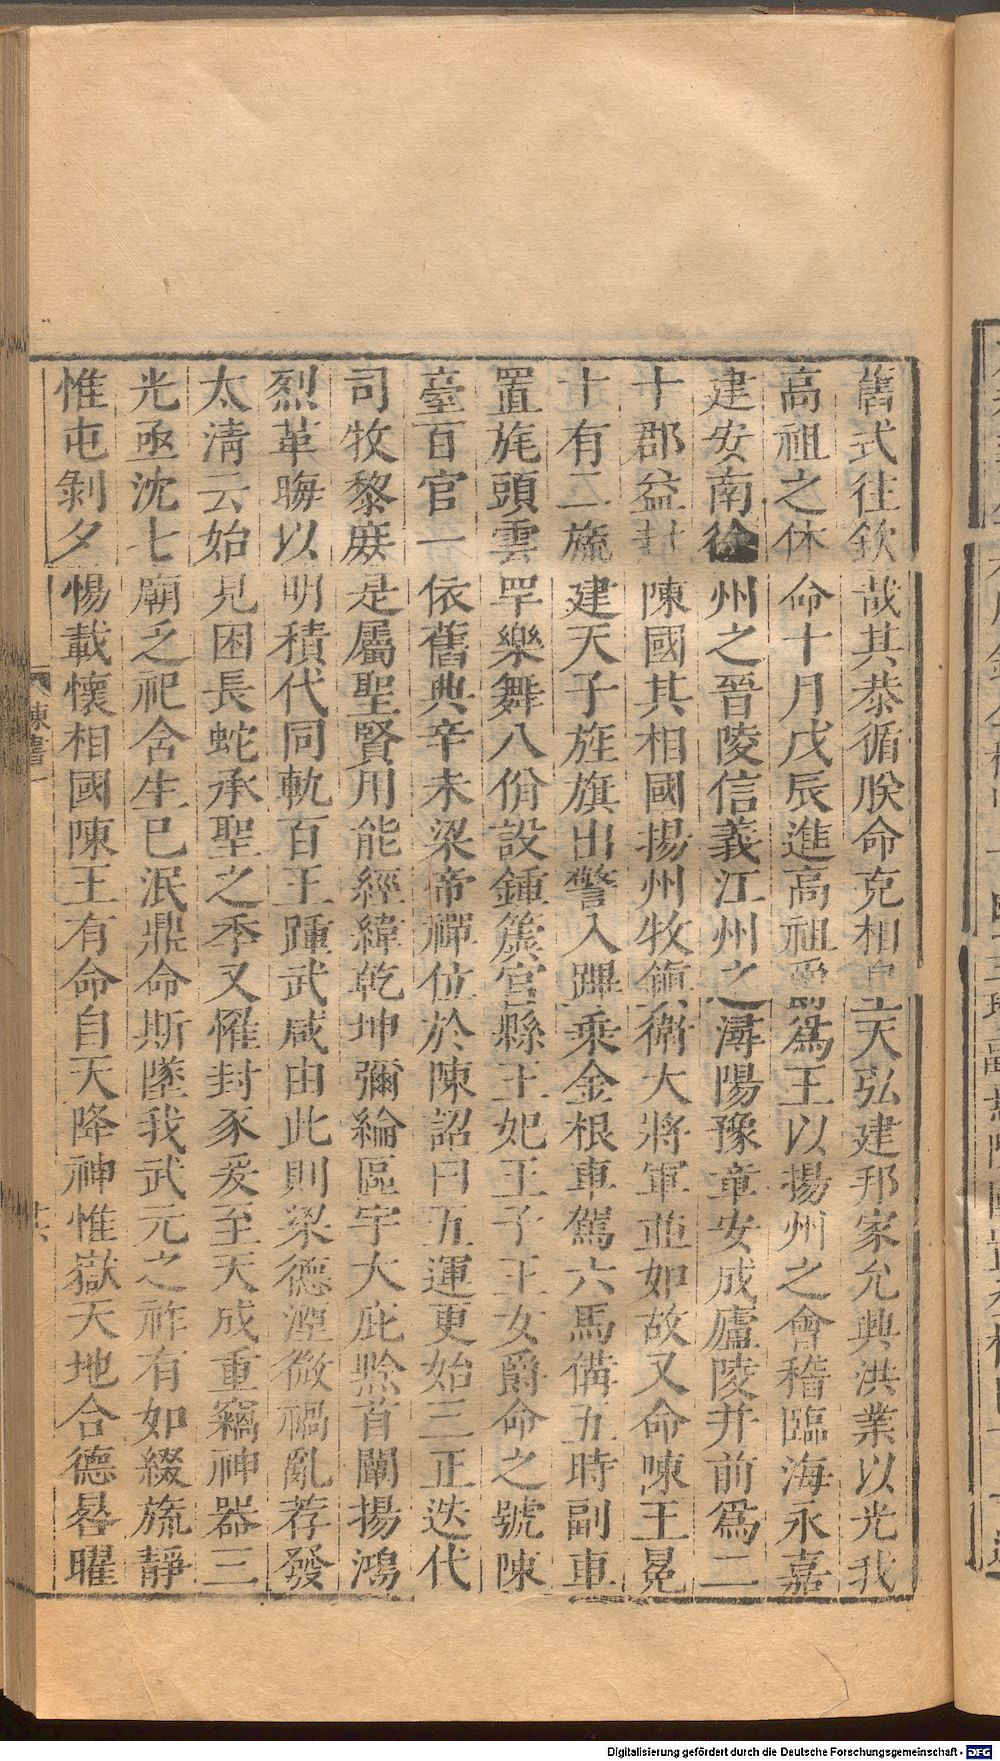 舊式往欽哉其恭循朕命克相皇天弘建邦家允興洪業以光我
高祖之休命十月戊辰進高祖爵爲王以揚州之會稽臨海永嘉
建安南徐州之晉陵信義江州之潯陽豫章安成廬陵并前爲二
十郡益封陳國其相國揚州牧鎭衛大將軍並如故又命陳王冕
十有二旒建天子旌旗出警入蹕乗金根車駕六馬備五時副車
置旄頭雲罕樂舞八佾設鍾簴宫縣王妃王子王女爵命之號陳
臺百官一依舊典辛未梁帝禪位於陳詔曰五運更始三正迭代
司牧黎庶是屬聖賢用能經緯乾坤彌綸區宇大庇黔首闡揚鴻
烈革晦以明積代同軌百王踵武咸由此則梁德湮微禍亂荐發
太清云始見困長蛇承聖之季又罹封豕爰至天成重竊神器三
光亟沈七廟乏祀含生已泯鼎命斯墜我武元之祚有如綴旒靜
惟屯剝夕惕載懷相國陳王有命自天降神惟嶽天地合德晷曜
陳書一
Digitalisierung gefördert durch die Deutsche Forschungsgemeinschaft - DFG